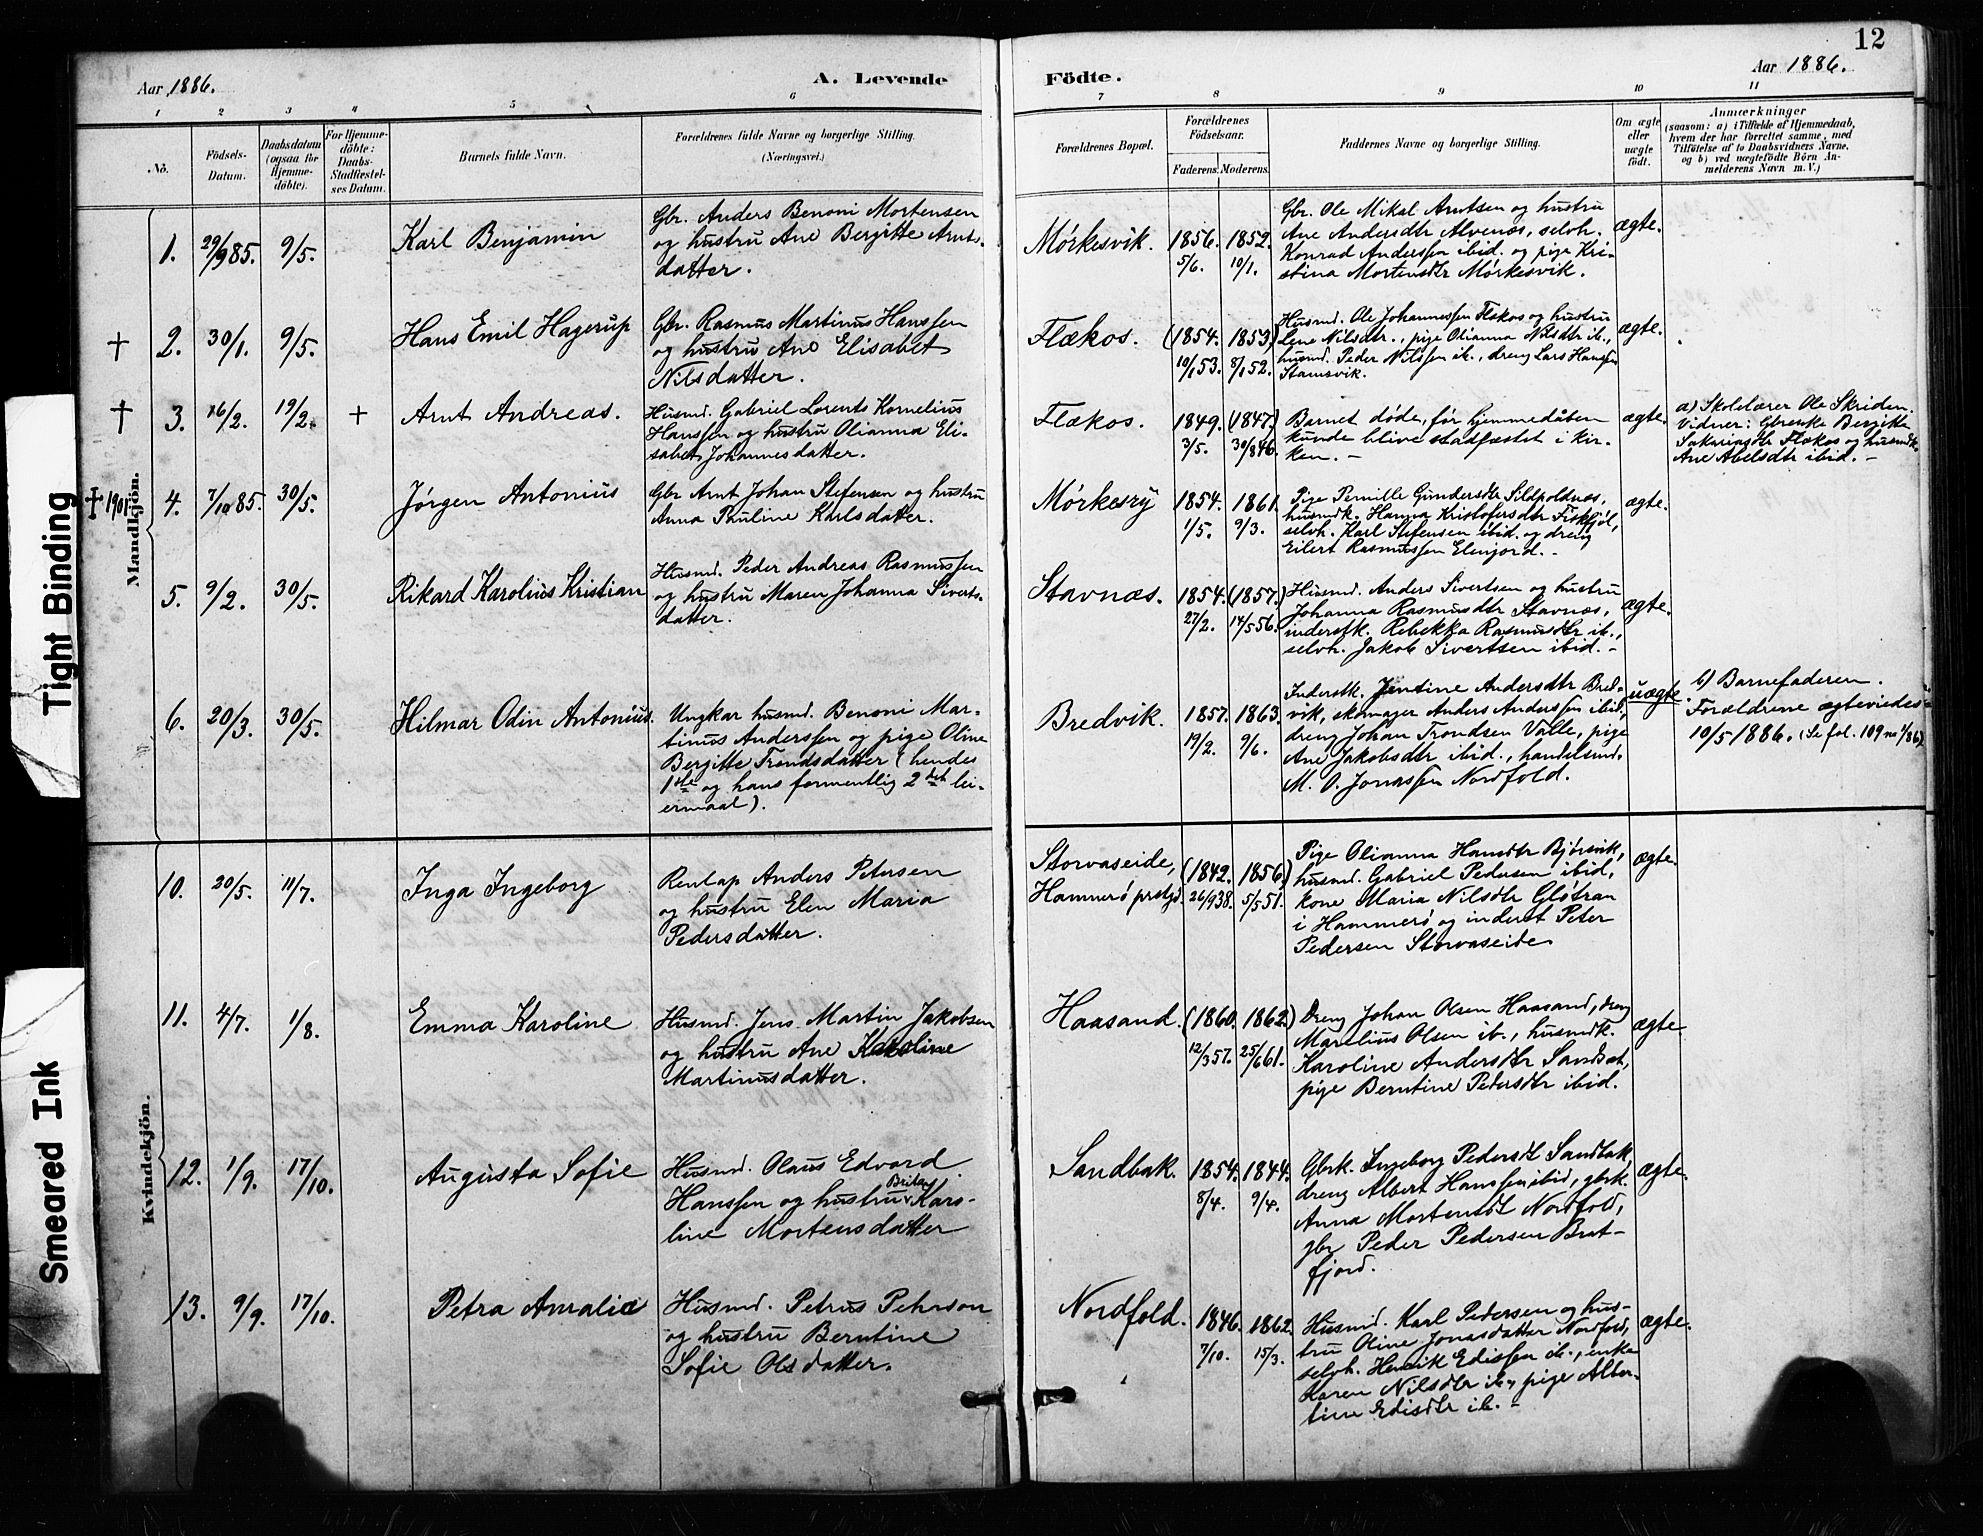 12
Aar 1886. A. Levende Födte. Aar 1886.
1 2 3 4 5 6 7 8 9 10 11
No.
Födsels-
Datum.
Daabsdatum
(ogsaa for
Hjemme-
döbte).
For Hjemme-
döbte:
Daabs-
Stadfæstel-
ses Datum.
Barnets fulde Navn.
Forældrenes fulde Navne og borgerlige Stilling.
(Næringsvei.)
Forældrenes Bopæl.
Forældrenes
Födselsaar.
Faderens. Moderens.
Faddernes Navne og borgerlige Stilling.
Om ægte
eller
uægte
födt.
Anmærkninger
(saasom: a) i Tilfælde af Hjemmedaab,
hvem der har forrettet samme, med
Tilföielse af to Daabsvidners Navne,
og b) ved uægtefödte Börn An-
melderens Navn m.V.)
Mandkjön.
1. 29/9 85. 9/5. Karl Benjamin
Gbr. Anders Benoni Mortensen
og hustru Ane Bergitte Arnts-
datter.
Mørkesvik. 1856. 1852.
5/6. 10/1.
Gbr. Ole Mikal Arntsen og hustru
Ane Andersdtr Alvenæs, selvh.
Konrad Anderssen ibid. og pige Kri-
stina Mortensdtr Mørkesvik.
ægte.
† 2. 30/1. 9/5. Hans Emil Hagerup
Gbr. Rasmus Martinus Hanssen
og hustru Ane Elisabet
Nilsdatter.
Flækos. (1854. 1853)
10/1 53. 8/1 52.
Husmd. Ole Johannessen Flækos og hustru
Lene Nilsdtr., pige Olianna Nilsdtr ib.,
husmd. Peder Nilssen ib., dreng Lars Hanssen
Stamsvik.
ægte.
† 3. 16/2. 19/2. + Arnt Andreas.
Husmd. Gabriel Lorents Kornelius
Hanssen og hustru Olianna Eli-
sabet Johannesdatter.
Flækos. 1849. (1847.)
3/5. 30/8 46.
Barnet døde, før hjemmedåben
kunde blive stadfæstet i kir-
ken. –
ægte.
a) Skolelærer Ole Skriden.
Vidner: Gbrenke Bergitte
Sakariasdtr Flækos og husmdk.
Ane Abelsdtr ibid. –
† 1901. 4. 7/10 85. 30/5. Jørgen Antonius
Gbr Arnt Johan Stefensen og hustru
Anna Pauline Karlsdatter.
Mørkesry 1854. 1861.
1/5. 9/3.
Pige Pernille Gundersdtr Sildpoldnæs,
husmdk. Hanna Kristofersdtr Fiskfjøl,
selvh. Karl Stefensen ibid. og dreng
Eilert Rasmussen Elvfjord. –
ægte.
5. 9/2. 30/5. Rikard Karolius Kristian
Husmd. Peder Andreas Rasmussen
og hustru Maren Johanna Siverts-
datter.
Stavnæs. 1854. (1857.)
27/2. 14/5 56.
Husmd. Anders Sivertsen og hustru
Johanna Rasmusdtr Stavnæs,
inderstk. Rebekka Rasmusdtr ib.,
selvh. Jakob Sivertsen ibid. –
ægte.
6. 20/3. 30/5. Hilmar Odin Antonius.
Ungkar husmd. Benoni Mar-
tinus Anderssen og pige Oline
Bergitte Trondsdatter (hendes
1ste og hans formentlig 2det lei-
ermaal).
Bredvik. 1857. 1863.
19/2. 9/6.
Inderstk. Jentine Andersdtr Bred-
vik, skomager Anders Anderssen ibid.,
dreng Johan Trondsen Valle, pige
Ane Jakobsdtr ibid., handelsmd.
M. O. Jonassen Nordfold.
uægte
b) Barnefaderen.
Forældrene ægteviedes
10/5 1886. (Se fol. 109 no 1/86)
Kvindekjön.
10. 20/5. 11/7. Inga Ingeborg
Renlap Anders Petersen
og hustru Elen Maria
Pedersdatter.
Storvaseide,
Hammerø prstgd. (1842. 1856)
26/9 38. 5/5 51.
Pige Olianna Hansdtr Bjørsvik,
husmd. Gabriel Pedersen ibid,
kone Maria Nilsdtr Gløtran
i Hammerø og inderst Peter
Pedersen Storvaseide
ægte.
11. 4/7. 1/8. Emma Karoline
Husmd. Jens Martin Jakobsen
og hustru Ane Karoline
Martinusdatter.
Haasand. (1860. 1862.)
12/3 57. 25/6 61.
Dreng Johan Olsen Haasand, dreng
Marelius Olsen ib., husmdk.
Karoline Andersdtr Sandsæt,
pige Berntine Pedersdtr ibid.
ægte
12. 1/9. 17/10. Augusta Sofie
Husmd. Olaus Edvard
Hanssen og hustru Brita Karo-
line Mortensdatter
Sandbak. 1854. 1844.
8/4. 9/4.
Gbrk. Ingeborg Pedersdtr Sandbak,
dreng Albert Hanssen ibid, gbrk.
Anna Mortensdtr Nordfold,
gbr Peder Pedersen Brat-
fjord.
ægte.
13. 9/9. 17/10. Petra Amalie
Husmd. Petrus Pehrson
og hustru Berntine
Sofie Olsdatter.
Nordfold. 1846. 1862.
7/10. 15/3.
Husmd. Karl Pedersen og hus-
tru Oline Jonasdatter Nordfold,
selvh. Henrik Edissen ib., enke
Karen Nilsdtr ib., pige Alber-
tine Edisdtr ib. –
ægte.
Tight Binding
Smeared Ink